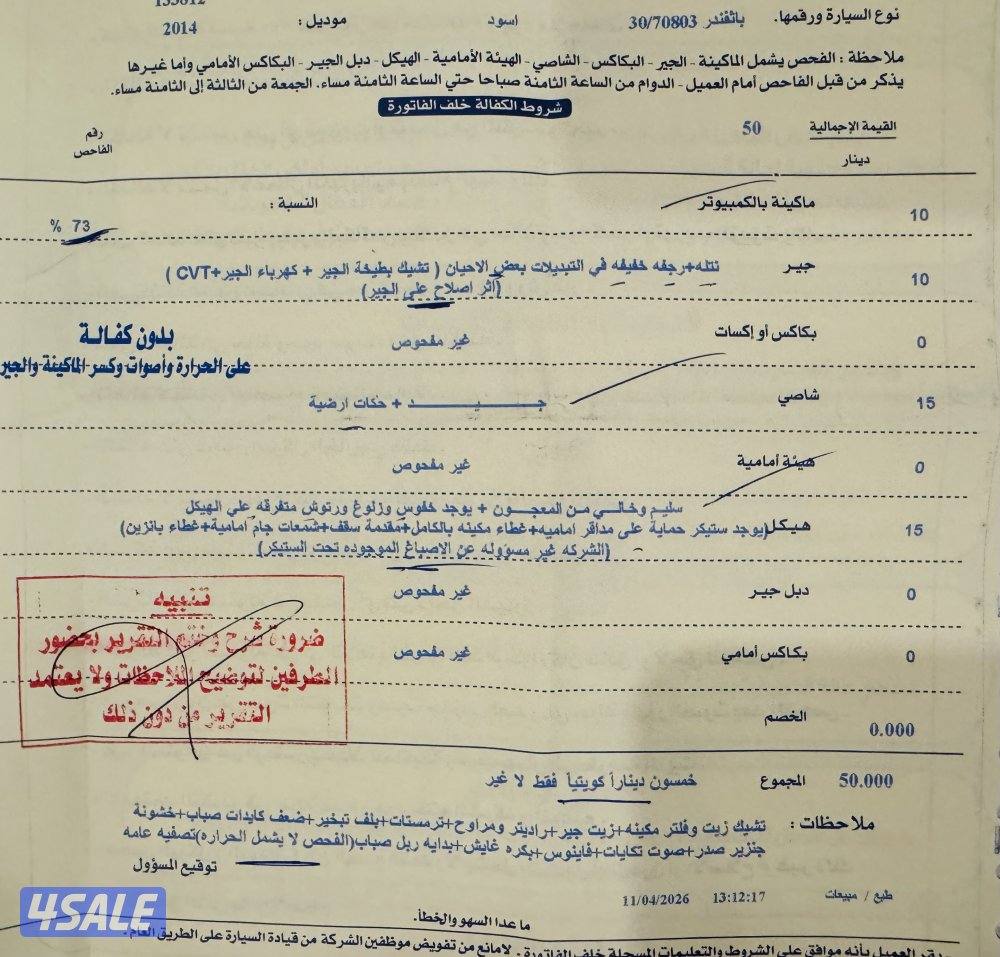 135812
نوع السيارة ورقمها. باثفندر 30/70803 اسود موديل : 2014
ملاحظة : الفحص يشمل الماكينة - الجير - البكاكس - الشاصي - الهيئة الأمامية - الهيكل - دبل الجير - البكاكس الأمامي وأما غيرها
يذكر من قبل الفاحص أمام العميل - الدوام من الساعة الثامنة صباحا حتي الساعة الثامنة مساء. الجمعة من الثالثة إلى الثامنة مساء.
شروط الكفالة خلف الفاتورة
القيمة الإجمالية 50
دينار
رقم الفاحص
10 ماكينة بالكمبيوتر النسبة : 73 %
10 جير نتله+رجفه خفيفه في التبديلات بعض الاحيان ( تشيك بطيخة الجير + كهرباء الجير+CVT )
(اثر اصلاح علي الجير)
0 بكاكس أو إكسات غير مفحوص
بدون كفالة
على الحرارة وأصوات وكسر الماكينة والجير
15 شاصي جـيـد + حكات ارضية
0 هيئة أمامية غير مفحوص
سليم وخالي من المعجون + يوجد خفوس وزلوغ ورتوش متفرقه علي الهيكل
15 هيكل (يوجد ستيكر حماية على مداقر اماميه+غطاء مكينه بالكامل+مقدمة سقف+شمعات جام امامية+غطاء بانزين)
(الشركه غير مسؤوله عن الاصباغ الموجوده تحت الستيكر)
0 دبل جير غير مفحوص
0 بكاكس أمامي غير مفحوص
تنبيه
ضرورة شرح وختم التقرير بحضور
الطرفين لتوضيح الملاحظات ولا يعتمد
التقرير من دون ذلك
0.000 الخصم
50.000 المجموع خمسون ديناراً كويتياً فقط لا غير
ملاحظات : تشيك زيت وفلتر مكينه+زيت جير+راديتر ومراوح+ترمستات+بلف تبخير+ضعف كايدات صباب+خشونة
جنزير صدر+صوت تكايات+فاينوس+بكره غايش+بدايه ربل صباب(الفحص لا يشمل الحراره)تصفيه عامه
توقيع المسؤول
طبع / مبيعات 13:12:17 11/04/2026
ما عدا السهو والخطأ.
يقر العميل بأنه موافق على الشروط والتعليمات المسجلة خلف الفاتورة . لامانع من تفويض موظفين الشركة من قيادة السيارة على الطريق العام.
4SALE